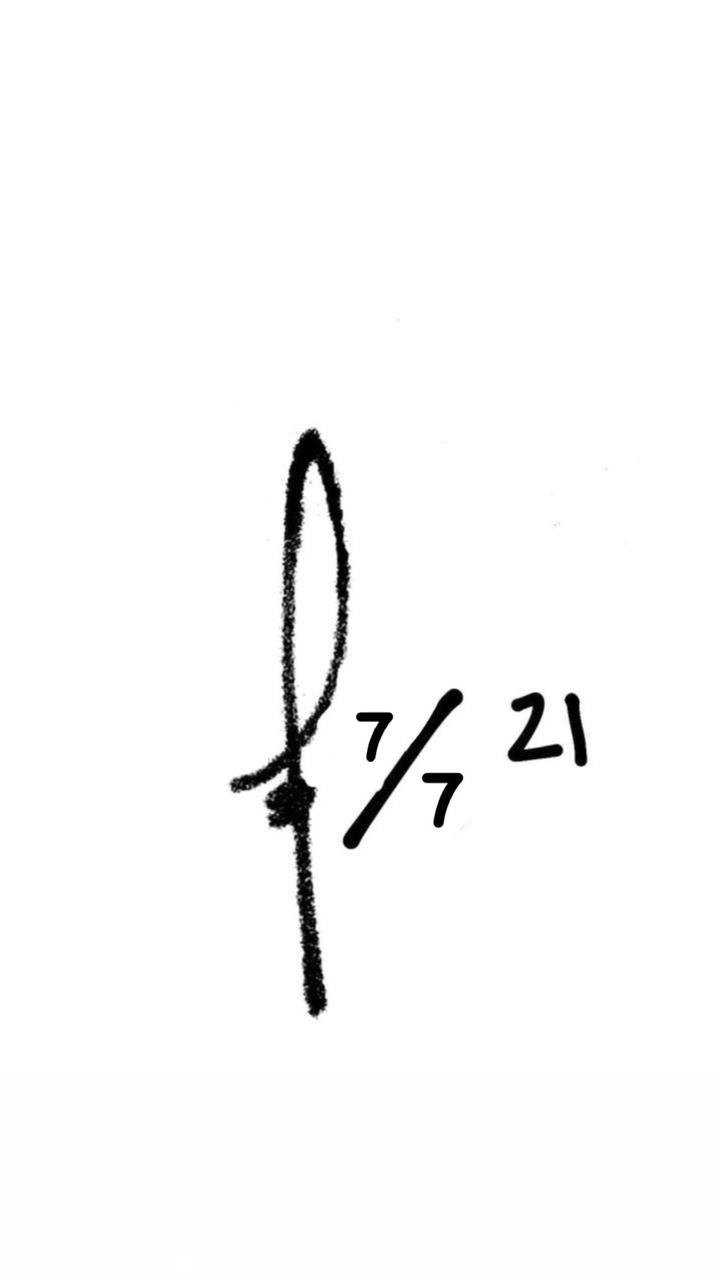 f 7/7 21